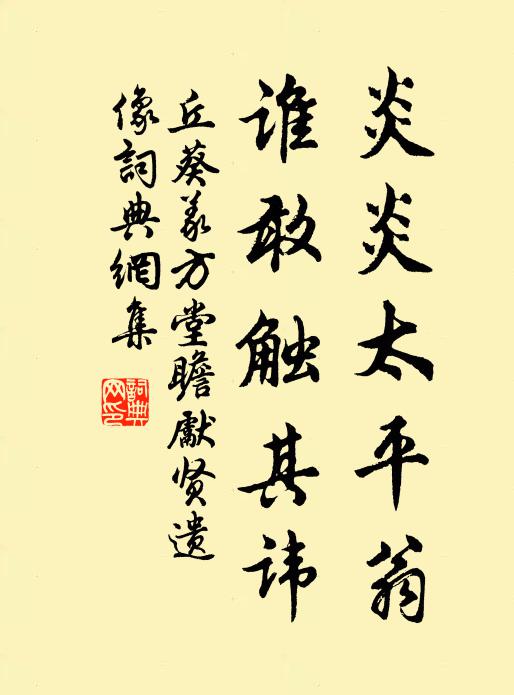 炎炎太平翁
谁敢触其讳
丘葵义方堂瞻献贤遗
像詞典網集
詞典
网印